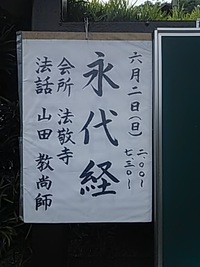 六月二日(日)
二.〇〇~
七.三〇~
永代経
会所 法敬寺
法話 山田教尚師